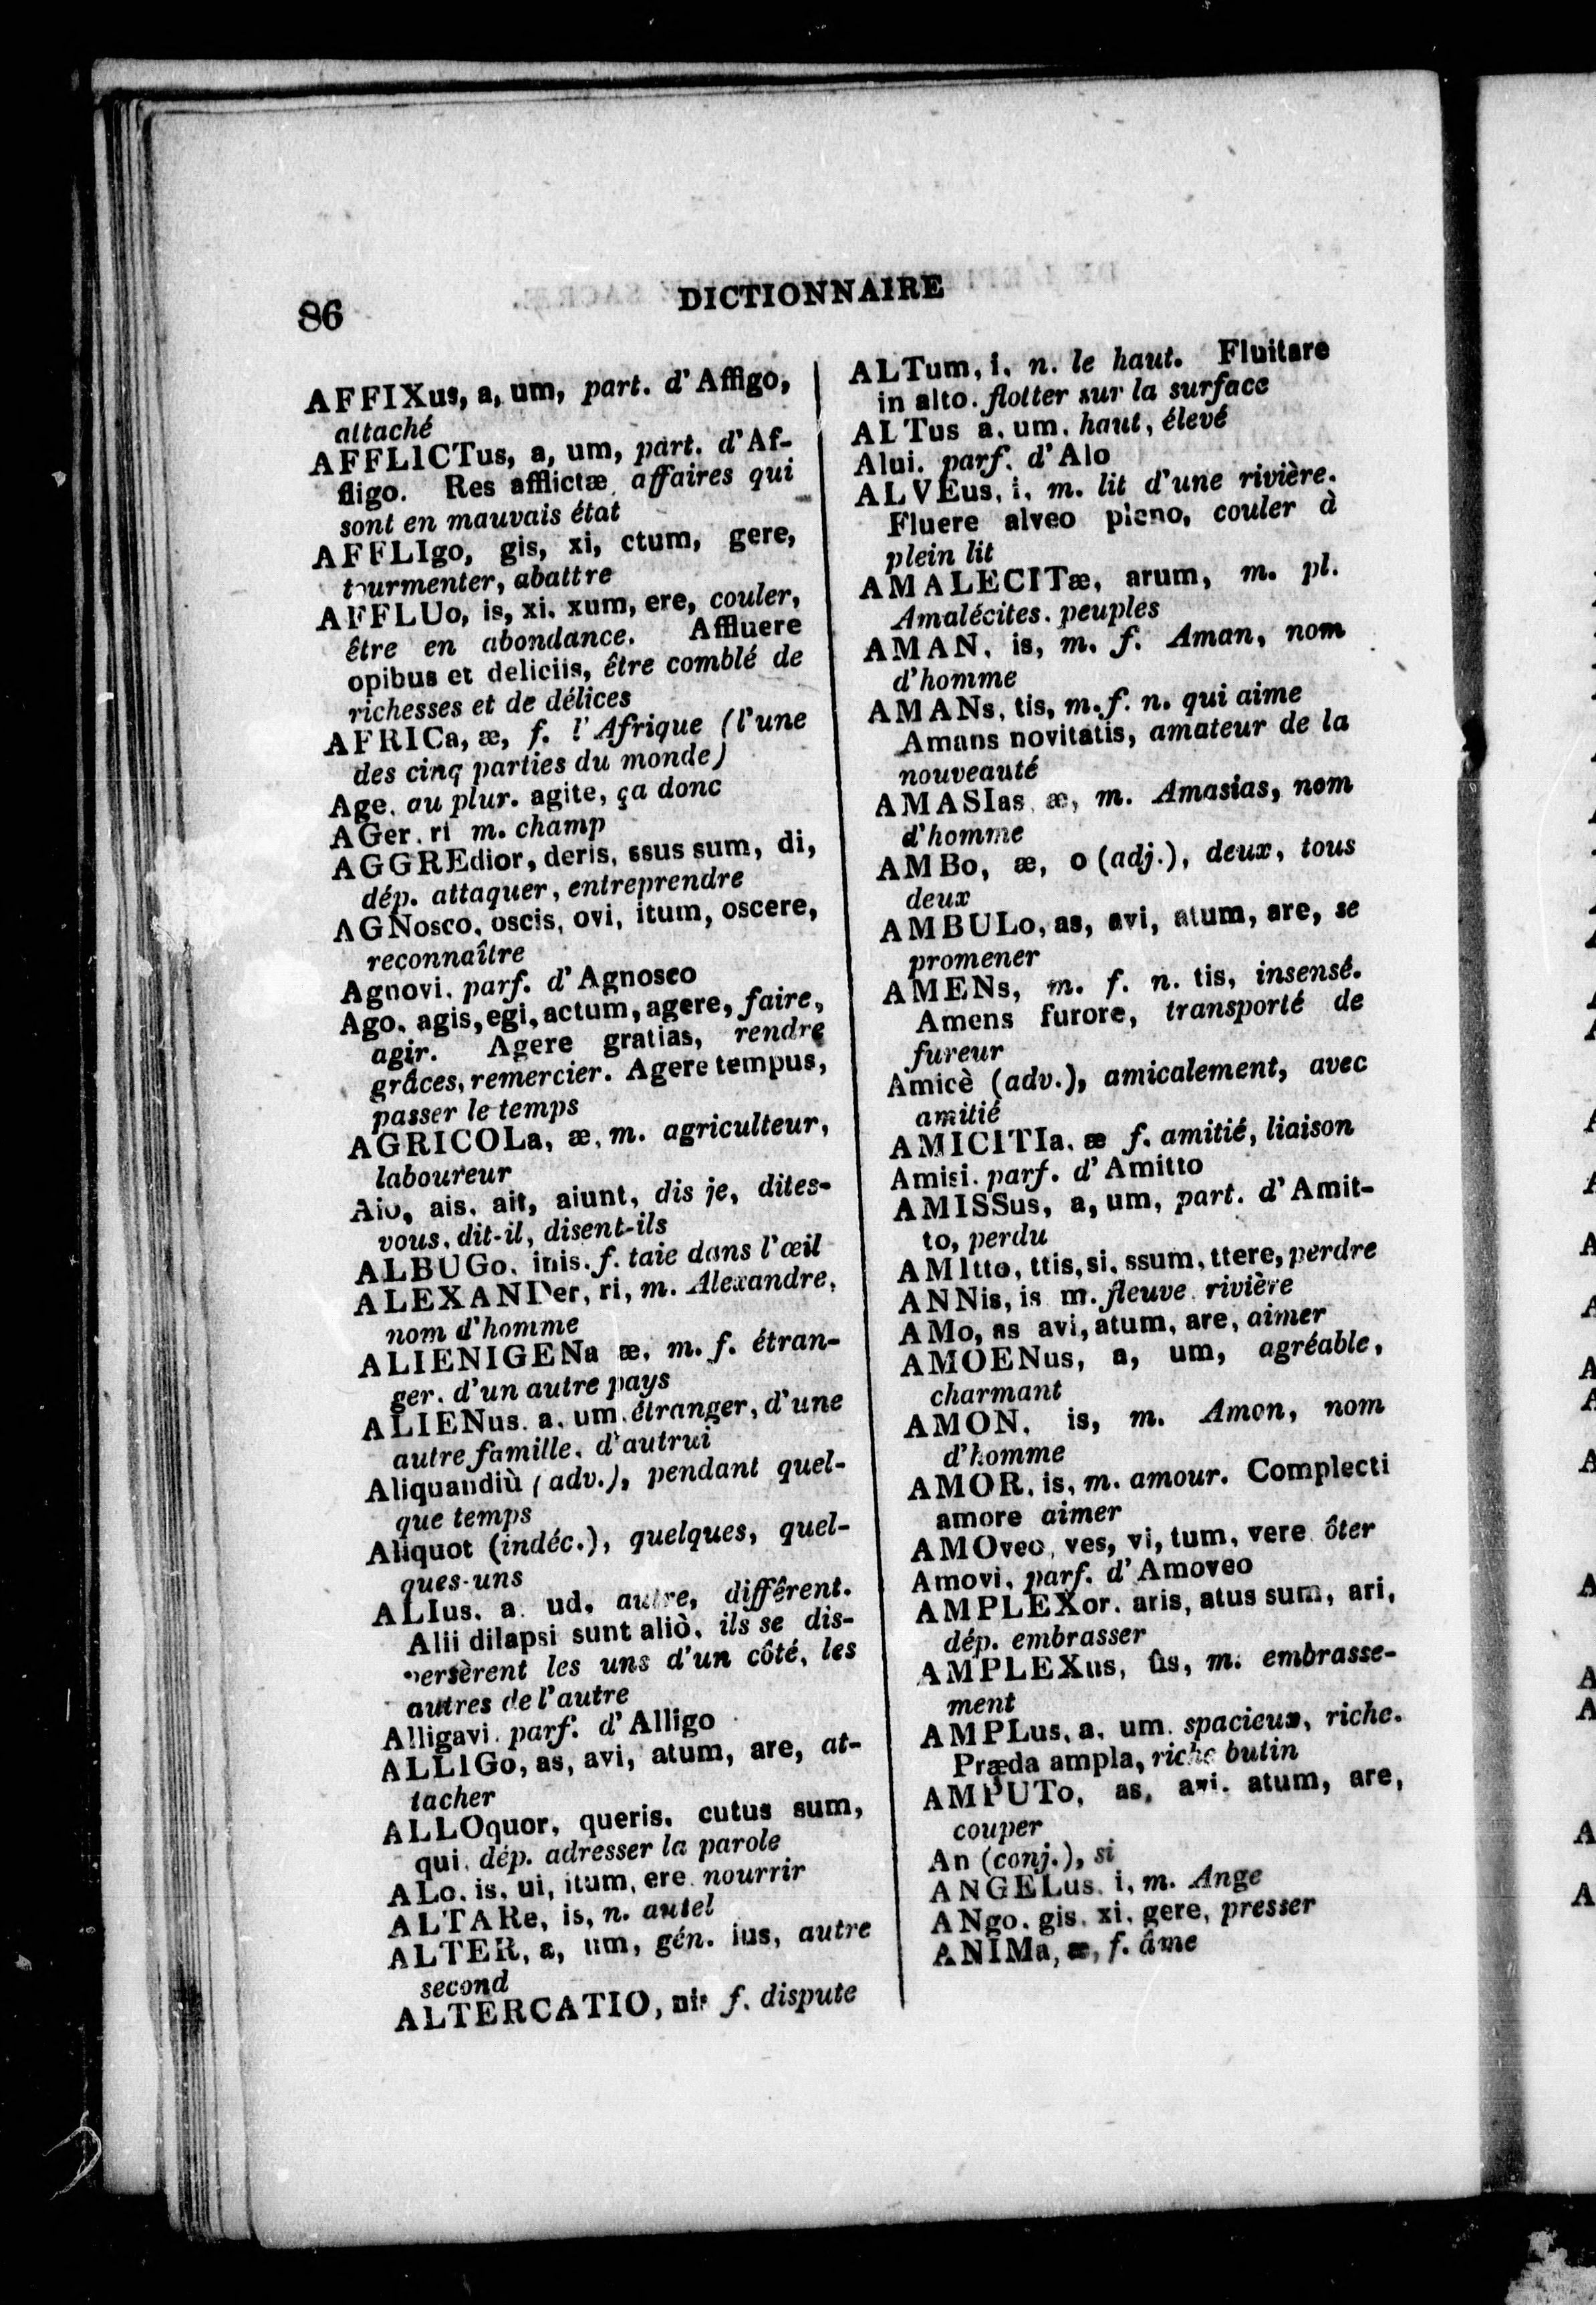 86
DICTIONNAIRE
AFFIXus, a, um, part. d'Affigo,
attaché
AFFLICTus, a, um, part. d'Af-
fligo. Res afflictæ, affaires qui
sont en mauvais état
AFFLIgo, gis, xi, ctum, gere,
tourmenter, abattre
AFFLUo, is, xi, xum, ere, couler,
être en abondance. Affluere
opibus et deliciis, être comblé de
richesses et de délices
AFRICa, æ, f. l'Afrique (l'une
des cinq parties du monde)
Age, au plur. agite, ça donc
AGer, ri m. champ
AGGREdior, deris, ssus sum, di,
dép. attaquer, entreprendre
AGNosco, oscis, ovi, itum, oscere,
reconnaître
Agnovi, parf. d'Agnosco
Ago, agis, egi, actum, agere, faire,
agir. Agere gratias, rendre
grâces, remercier. Agere tempus,
passer le temps
AGRICOLa, æ, m. agriculteur,
laboureur
Aio, ais, ait, aiunt, dis je, dites-
vous, dit-il, disent-ils
ALBUGo, inis, f. taie dans l'œil
ALEXANDer, ri, m. Alexandre,
nom d'homme
ALIENIGENa æ, m. f. étran-
ger, d'un autre pays
ALIENus, a, um, étranger, d'une
autre famille, d'autrui
Aliquandiù (adv.), pendant quel-
que temps
Aliquot (indéc.), quelques, quel-
ques-uns
ALIus, a, ud, autre, différent.
Alii dilapsi sunt aliò, ils se dis-
persèrent les uns d'un côté, les
autres de l'autre
Alligavi, parf. d'Alligo
ALLIGo, as, avi, atum, are, at-
tacher
ALLOquor, queris, cutus sum,
qui, dép. adresser la parole
ALo, is, ui, itum, ere, nourrir
ALTARe, is, n. autel
ALTER, a, um, gén. ius, autre
second
ALTERCATIO, nis f. dispute
ALTum, i, n. le haut. Fluitare
in alto, flotter sur la surface
ALTus a, um, haut, élevé
Alui, parf. d'Alo
ALVEus, i, m. lit d'une rivière.
Fluere alveo pleno, couler à
plein lit
AMALECITæ, arum, m. pl.
Amalécites, peuples
AMAN, is, m. f. Aman, nom
d'homme
AMANs, tis, m. f. n. qui aime
Amans novitatis, amateur de la
nouveauté
AMASIas, æ, m. Amasias, nom
d'homme
AMBo, æ, o (adj.), deux, tous
deux
AMBULo, as, avi, atum, are, se
promener
AMENs, m. f. n. tis, insensé.
Amens furore, transporté de
fureur
Amicè (adv.), amicalement, avec
amitié
AMICITIa, æ f. amitié, liaison
Amisi, parf. d'Amitto
AMISSus, a, um, part. d'Amit-
to, perdu
AMItto, ttis, si, ssum, ttere, perdre
ANNis, is m. fleuve, rivière
AMo, as avi, atum, are, aimer
AMOENus, a, um, agréable,
charmant
AMON, is, m. Amon, nom
d'homme
AMOR, is, m. amour. Complecti
amore aimer
AMOveo, ves, vi, tum, vere, ôter
Amovi, parf. d'Amoveo
AMPLEXor, aris, atus sum, ari,
dép. embrasser
AMPLEXus, ûs, m. embrasse-
ment
AMPLus, a, um, spacieux, riche.
Præda ampla, riche butin
AMPUTo, as, avi, atum, are,
couper
An (conj.), si
ANGELus, i, m. Ange
ANgo, gis, xi, gere, presser
ANIMa, æ, f. âme